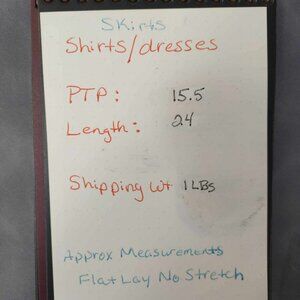 Skirts
Shirts/dresses
PTP: 15.5
Length: 24
Shipping wt 1 LBs
Approx Measurements
Flat Lay No Stretch